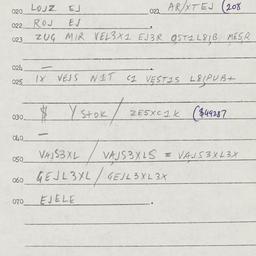 020 LOUZ EJ 021 AR/XTEJ (208
022 ROJ EJ
023 ZUG MIR VEL3X1 EJ3R
024 —
025 IX VEJS N1T C1 VEST1S
030 $ Y STOK / ZESXC1K ($49287
040 —
050 VAJS3XL / VAJS3XLS = VAJS3XL3X
060 GEJL3XL / GEJL3XL3X
070 EJELE